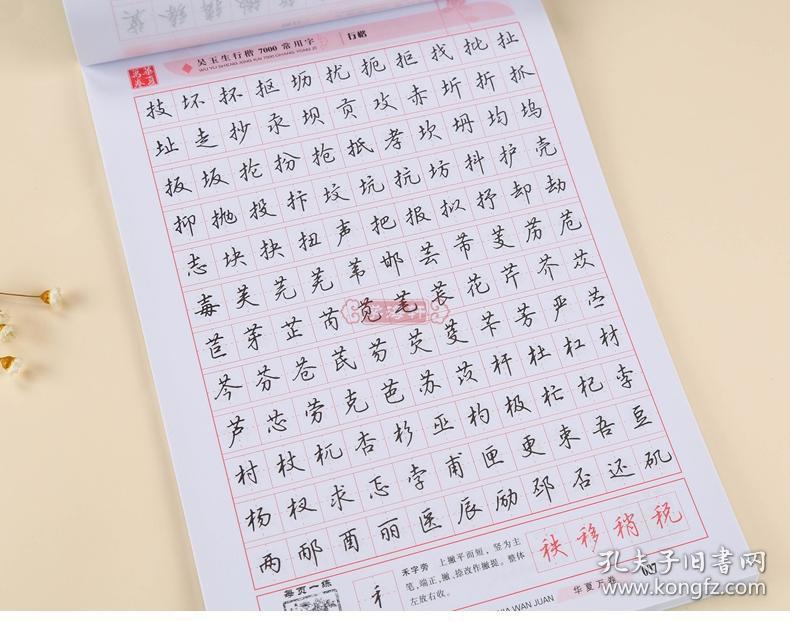 吴玉生行楷7000常用字 行楷
WU YU SHENG XING KAI 7000 CHANG YONG ZI
技坏抔抠坜扰扼拒找批扯
址走抄汞坝贡攻赤圻折抓
扳坂抡扮抢抵孝坎坍均坞
抑抛投抃坟坑抗坊抖护壳
志块抉扭声把报拟抒却劫
毒芙芜苇邯芸芾芰苈苊
苣芽芷芮苋芼苌花芹芥苁
芩芬苍芪芴芡芟苄芳严苎
芦芯劳克芭苏苡杆杜杠材
村杖杌杏杉巫杓极杧杞李
杨杈求忑孛甫匣更束吾豆
两邴酉丽医辰励邳否还矶
每页一练
禾字旁 上撇平而短，竖为主
笔，端正，撇、捺改作撇提。整体
左放右收。
秧移稍税
华夏万卷
孔夫子旧书网
www.kongfz.com